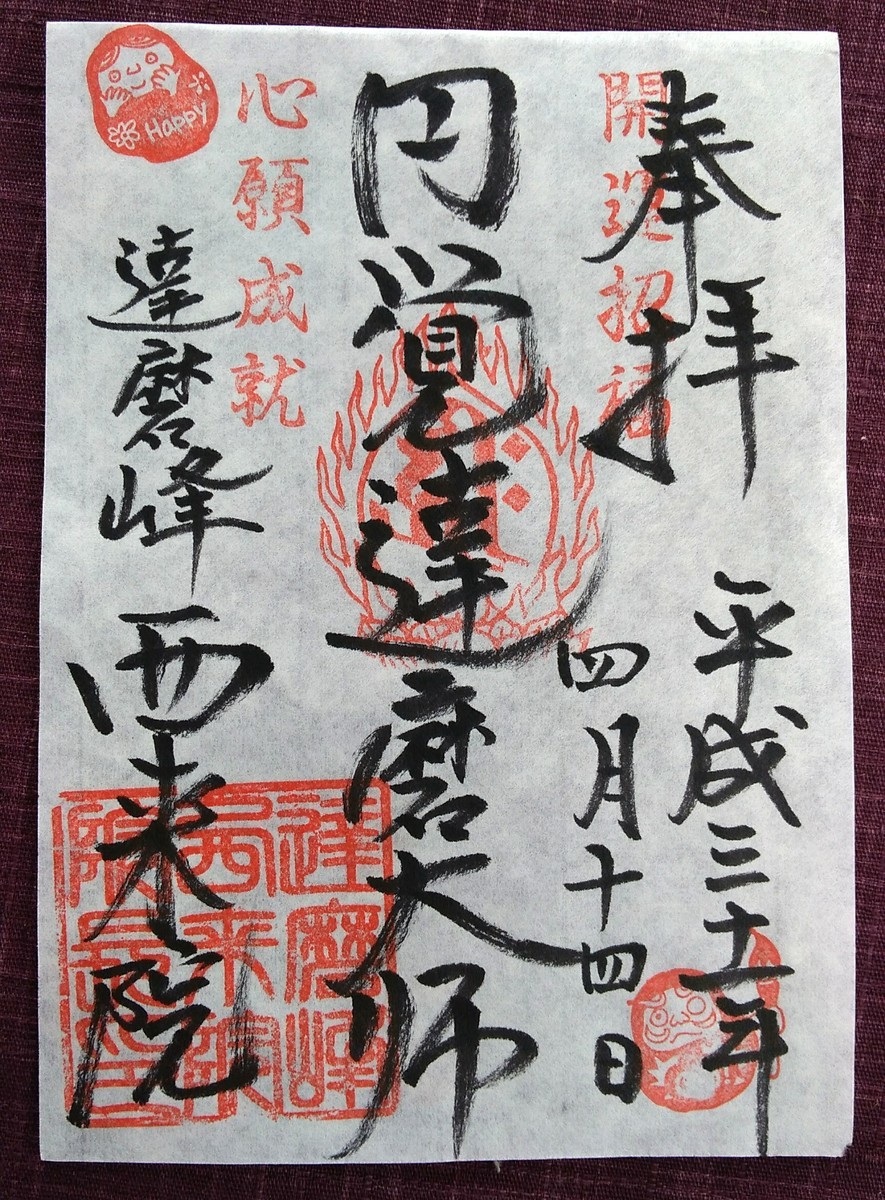 奉拝
開運招福
平成三十一年
四月十四日
円覚達磨大師
心願成就
達磨峰
西来院
Happy
達磨峰
西来院